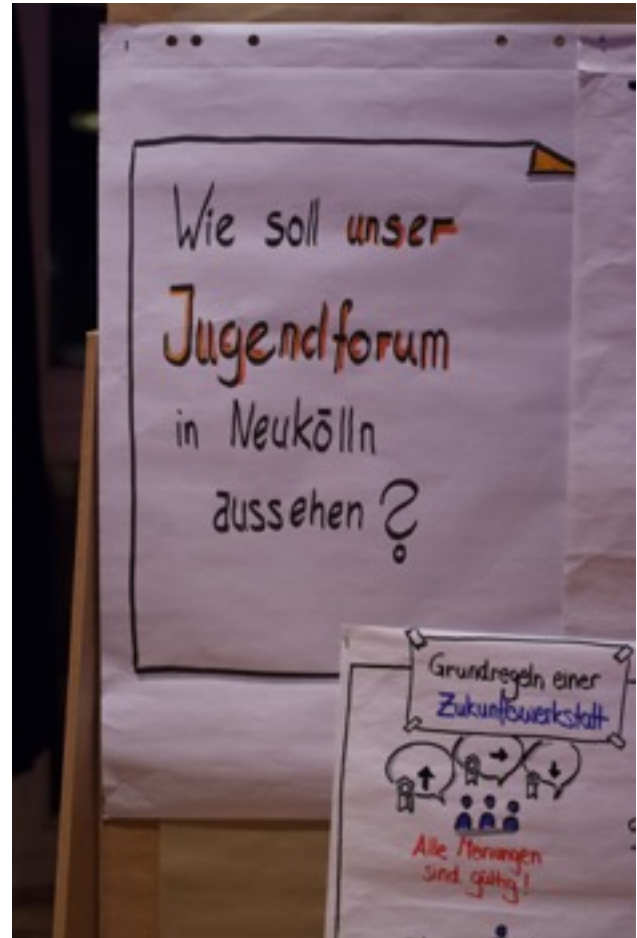 Wie soll unser
Jugendforum
in Neukölln
aussehen?
Grundregeln einer
Zukunftswerkstatt
Alle Meinungen
sind gültig!